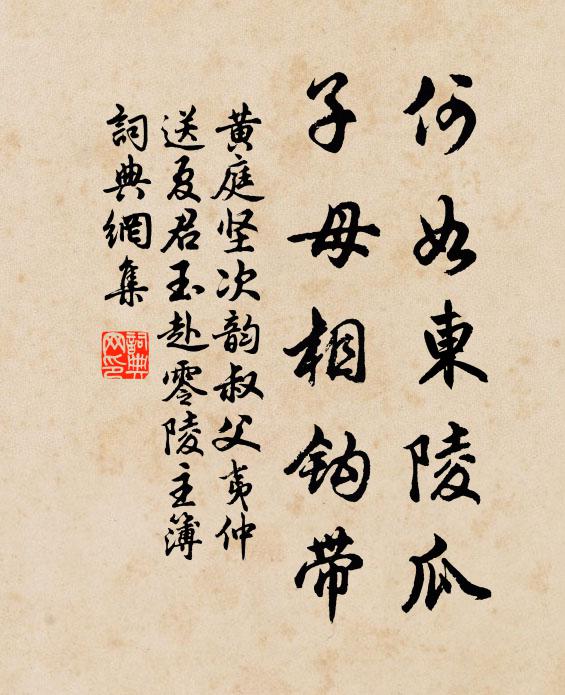 何如東陵瓜
子母相鈎带
黄庭坚次韵叔父夷仲
送夏君玉赴零陵主簿
詞典網集
詞典网印